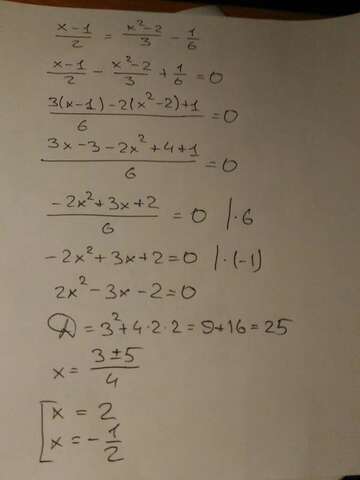 (x-1)/2 = (x²-2)/3 - 1/6
(x-1)/2 - (x²-2)/3 + 1/6 = 0
(3(x-1)-2(x²-2)+1)/6 = 0
(3x-3-2x²+4+1)/6 = 0
(-2x²+3x+2)/6 = 0 |·6
-2x²+3x+2=0 |·(-1)
2x²-3x-2=0
D = 3²+4·2·2 = 9+16=25
x = (3±5)/4
[x = 2
x = -1/2